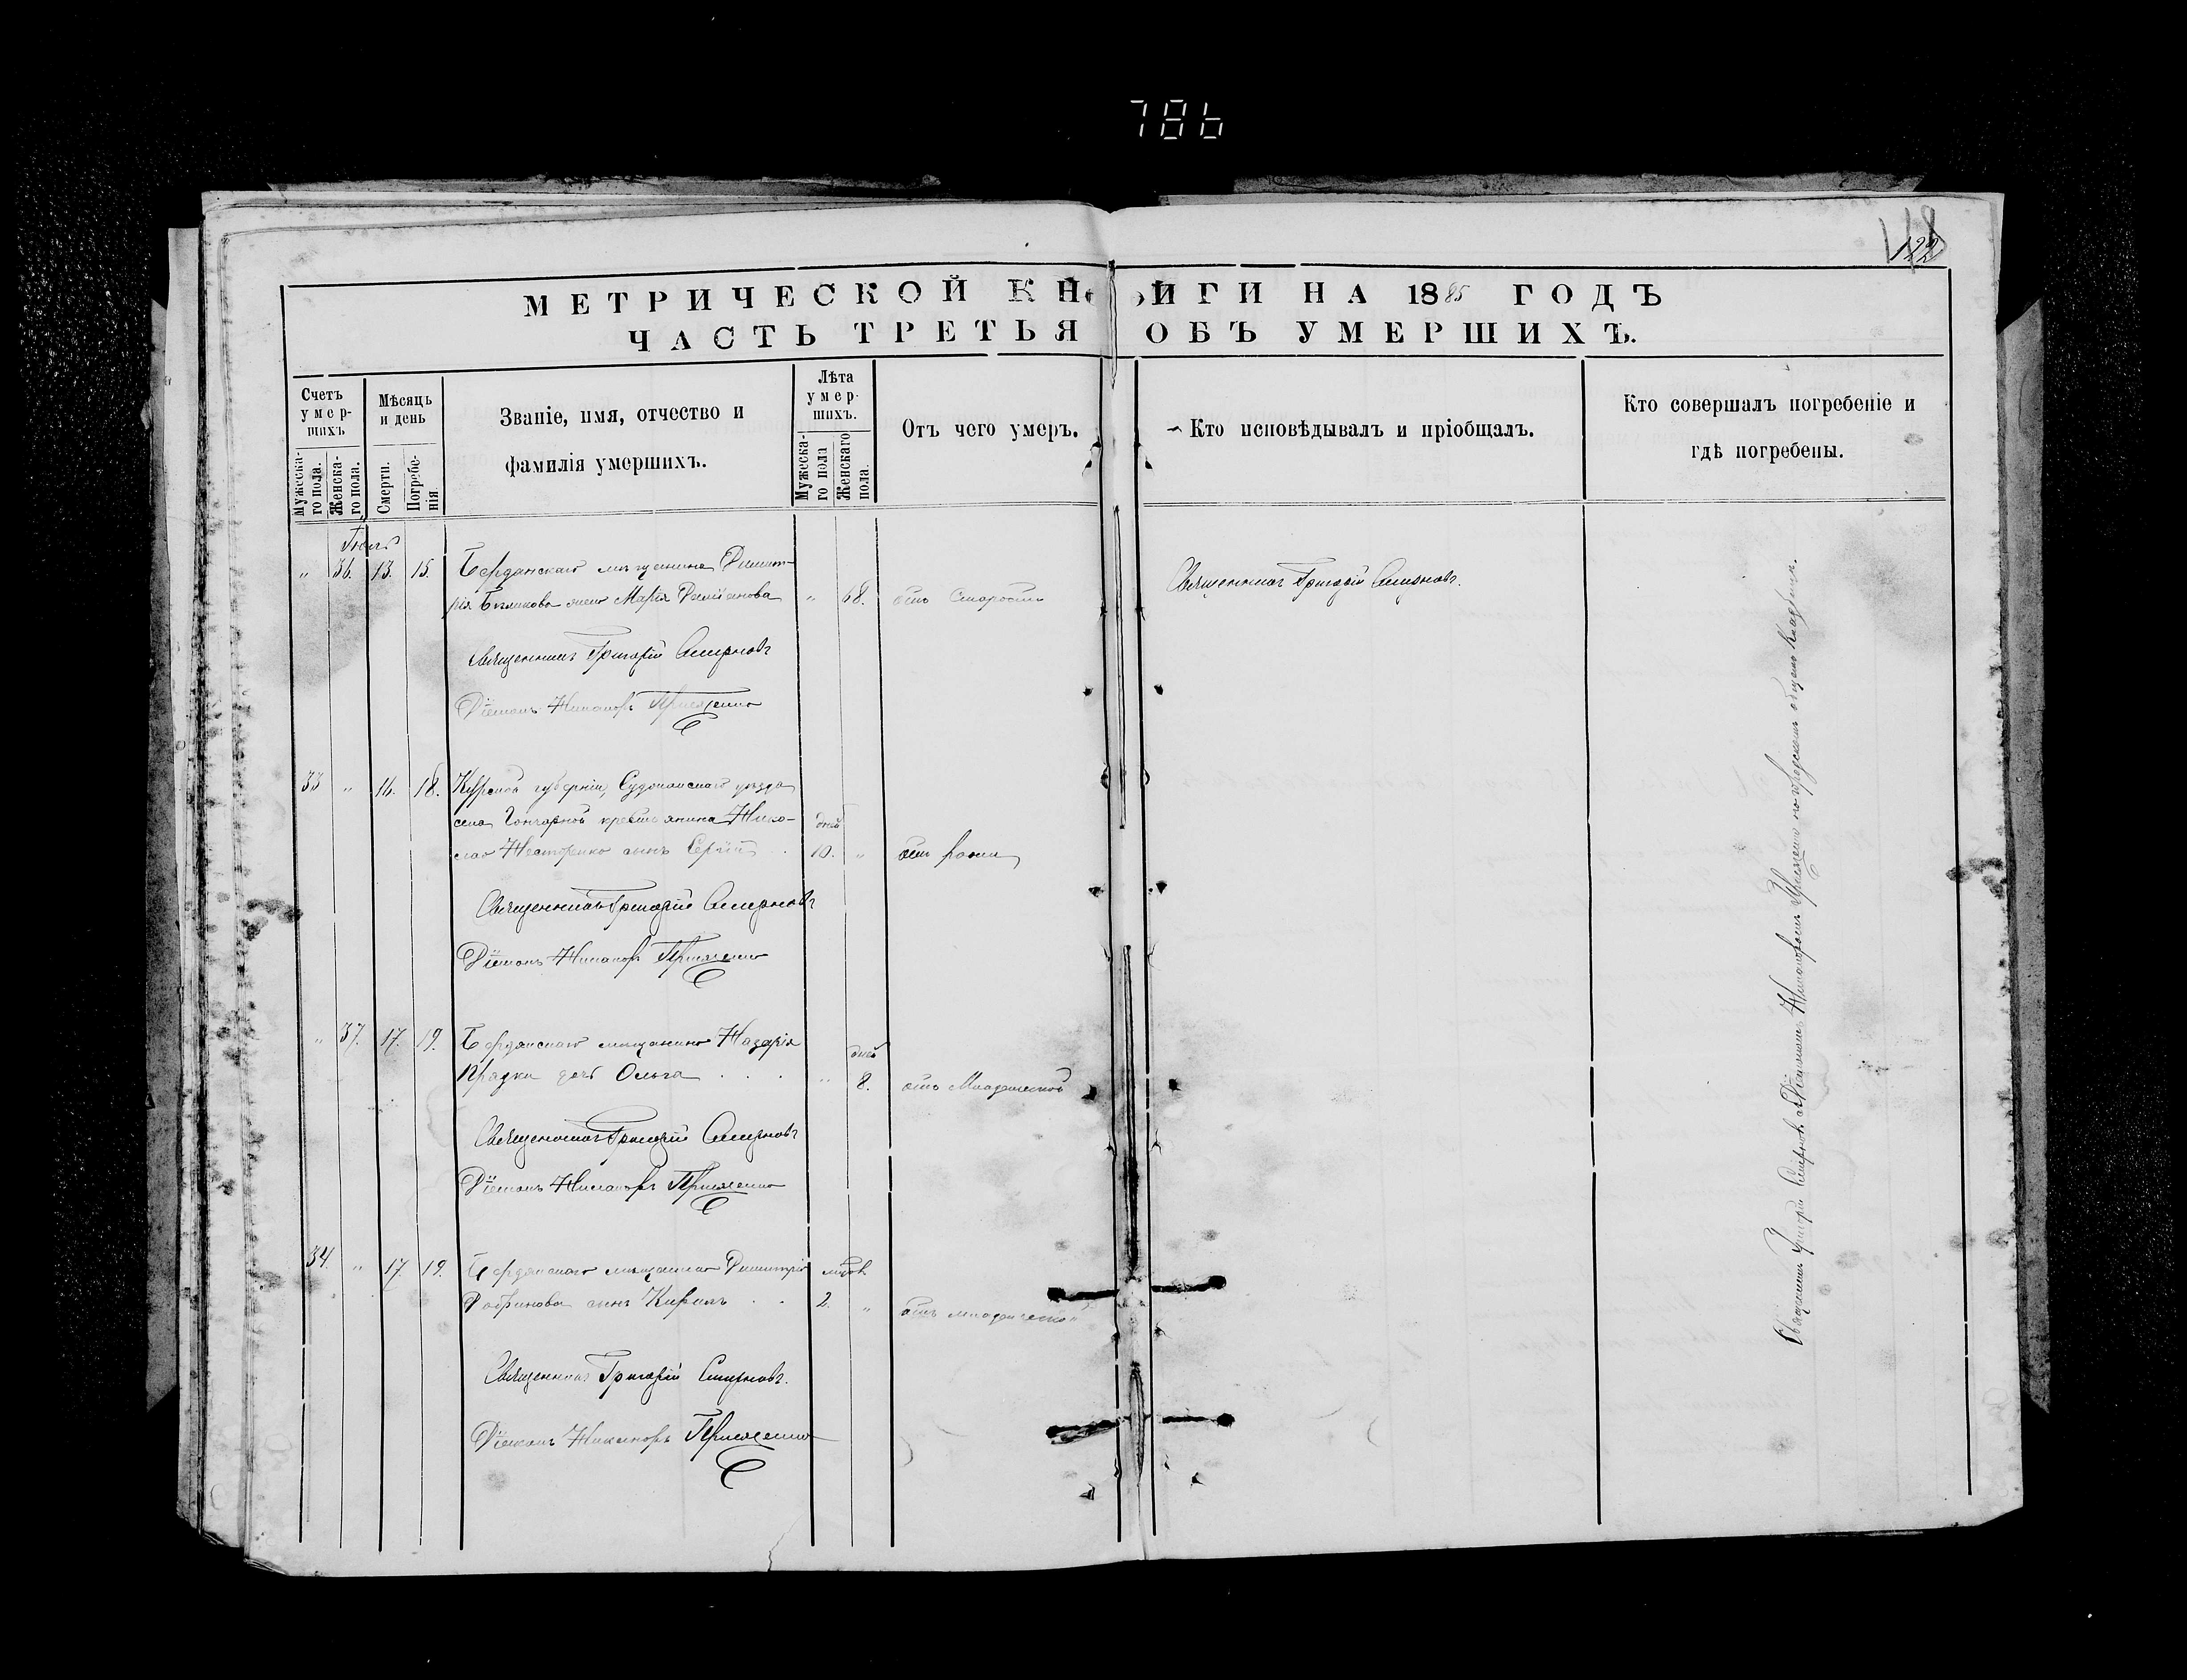 786
122
МЕТРИЧЕСКОЙ КНИГИ НА 1885 ГОДЪ
ЧАСТЬ ТРЕТЬЯ ОБЪ УМЕРШИХЪ.
Счетъ умер-шихъ
Мужеска-го пола.
Женска-го пола.
Мѣсяцъ и день
Смерти.
Погребе-нія
Званіе, имя, отчество и
фамилія умершихъ.
Лѣта умер-шихъ.
Мужеска-го пола
Женскаго пола.
Отъ чего умеръ.
Кто исповѣдывалъ и пріобщалъ.
Кто совершалъ погребеніе и
гдѣ погребены.
Іюль
„ 36. 13. 15. Бердянскаго мѣщанина Димит-
рія жена Марія „ 68. отъ Старости
Священникъ Григорій Смирновъ.
Священникъ Григорій Смирновъ
Діаконъ Никаноръ
33 „ 16. 18. Курской губерніи, Суджанскаго уѣзда
села Гончарной крестьянина Нико-
лая Нестеренко сынъ Сергій дней 10. „ отъ рожи
Священникъ Григорій Смирновъ
Діаконъ Никаноръ
„ 37. 17. 19. Бердянскаго мѣщанина Назарія
Прядки дочь Ольга . . . „ дней 8. отъ Младенческой
Священникъ Григорій Смирновъ
Діаконъ Никаноръ
34. „ 17. 19. Бердянскаго мѣщанина Димитрія
сынъ Кирилъ . . 2. „ отъ младенческой
Священникъ Григорій Смирновъ.
Діаконъ Никаноръ
Священникъ Григорій Смирновъ съ Діакономъ Никаноромъ на городскомъ общемъ кладбищѣ.